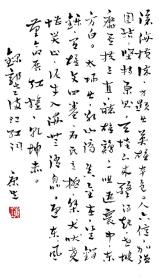 沧海横流方显出英雄本色人六亿加强
团结坚持原则天垮下来擎得起世披
靡矣扶之直听雄鸡一唱遍寰中东
方白太阳出冰山滴真金在岂销
铄有雄文四卷为民立极桀犬吠尧
堪笑止泥牛入海无消息迎东风
革命展红旗乾坤赤
录郭老满江红词